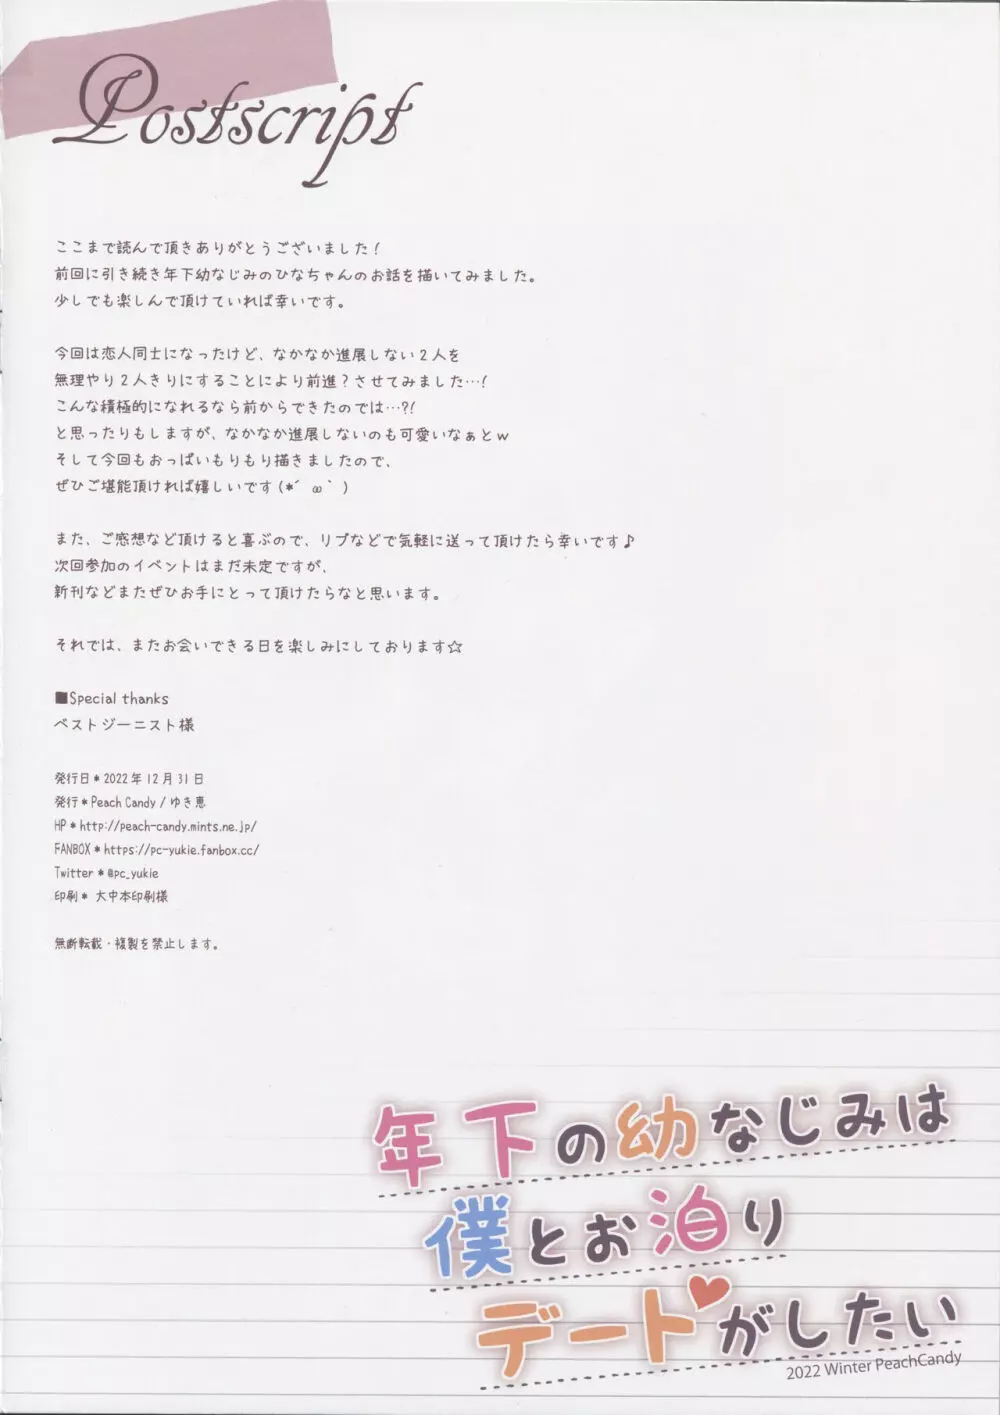 Postscript
ここまで読んで頂きありがとうございました!
前回に引き続き年下幼なじみのひなちゃんのお話を描いてみました。
少しでも楽しんで頂けていれば幸いです。
今回は恋人同士になったけど、なかなか進展しない2人を
無理やり2人きりにすることにより前進?させてみました…!
こんな積極的になれるなら前からできたのでは…?!
と思ったりもしますが、なかなか進展しないのも可愛いなぁとw
そして今回もおっぱいもりもり描きましたので、
ぜひご堪能頂ければ嬉しいです(*´ω`)
また、ご感想など頂けると喜ぶので、リプなどで気軽に送って頂けたら幸いです♪
次回参加のイベントはまだ未定ですが、
新刊などまたぜひお手にとって頂けたらなと思います。
それでは、またお会いできる日を楽しみにしております☆
■Special thanks
ベストジーニスト様
発行日*2022年12月31日
発行*Peach Candy/ゆき恵
HP*http://peach-candy.mints.ne.jp/
FANBOX*https://pc-yukie.fanbox.cc/
Twitter*@pc_yukie
印刷* 大中本印刷様
無断転載・複製を禁止します。
年下の幼なじみは
僕とお泊り
デート♥がしたい
2022 Winter PeachCandy